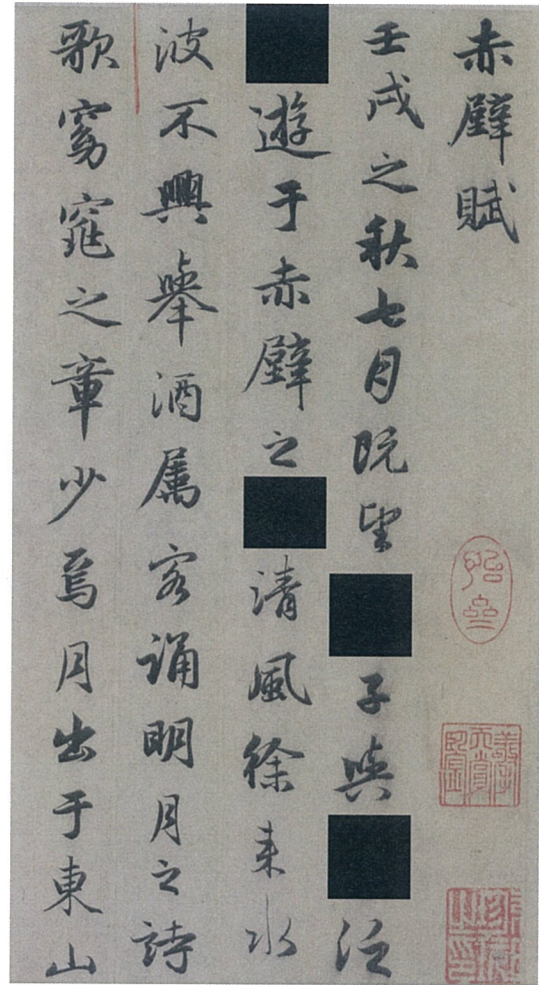 赤壁賦
壬戌之秋七月既望子與泛
遊于赤壁之清風徐来水
波不興舉酒属客誦明月之詩
歌窈窕之章少焉月出于東山